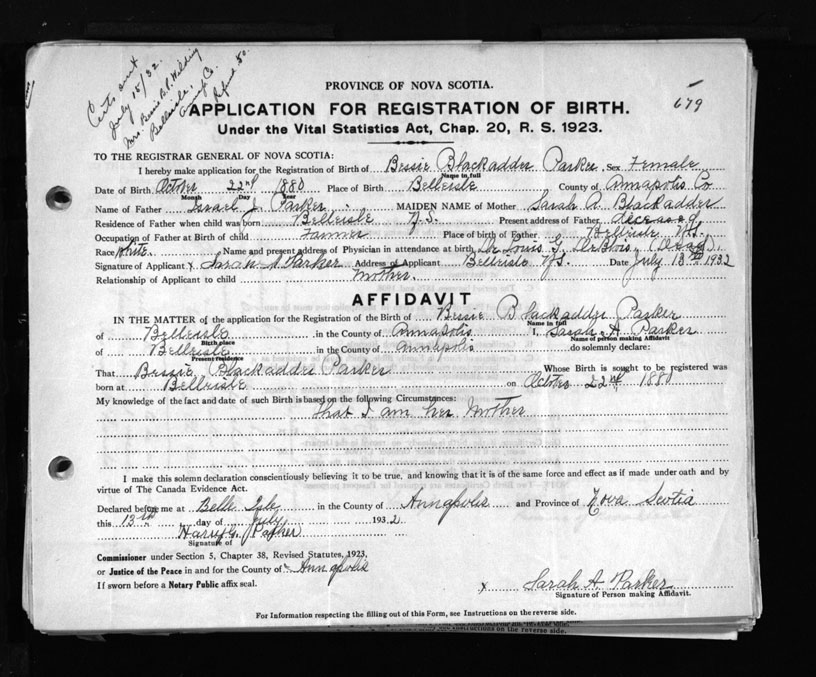 Certs sent
July 15/32
Mrs Bessie B.P. Wilding
Belleisle,
Annap Co.
Refund 50.
679
PROVINCE OF NOVA SCOTIA.
APPLICATION FOR REGISTRATION OF BIRTH.
Under the Vital Statistics Act, Chap. 20, R. S. 1923.
TO THE REGISTRAR GENERAL OF NOVA SCOTIA:
I hereby make application for the Registration of Birth of Bessie Blackadder Parker Sex Female
Name in full
Date of Birth October 22nd 1880 Place of Birth Belleisle County of Annapolis Co
Month Day Year
Name of Father Israel J. Parker MAIDEN NAME of Mother Sarah A Blackadder
Residence of Father when child was born Belleisle N.S. Present address of Father deceased
Occupation of Father at Birth of child Farmer Place of birth of Father Belleisle N.S.
Race White Name and present address of Physician in attendance at birth Dr Louis G. (Dead).
Signature of Applicant x Sarah A Parker Address of Applicant Belleisle N.S. Date July 13th 1932
Relationship of Applicant to child mother
AFFIDAVIT
IN THE MATTER of the application for the Registration of the Birth of Bessie Blackadder Parker
Name in full
of Belleisle in the County of Annapolis I, Sarah A Parker
Birth place Name of person making Affidavit
of Belleisle in the County of Annapolis do solemnly declare:
Present residence
That Bessie Blackadder Parker Whose Birth is sought to be registered was
born at Belleisle on October 22nd 1880
My knowledge of the fact and date of such Birth is based on the following Circumstances:
that I am her Mother
I make this solemn declaration conscientiously believing it to be true, and knowing that it is of the same force and effect as if made under oath and by
virtue of The Canada Evidence Act.
Declared before me at Belle Isle in the County of Annapolis and Province of Nova Scotia
this 13th day of July 1932
Harry G. Parker
Signature of
Commissioner under Section 5, Chapter 38, Revised Statutes, 1923,
or Justice of the Peace in and for the County of Annapolis
If sworn before a Notary Public affix seal.
x Sarah A Parker
Signature of Person making Affidavit.
For Information respecting the filling out of this Form, see Instructions on the reverse side.